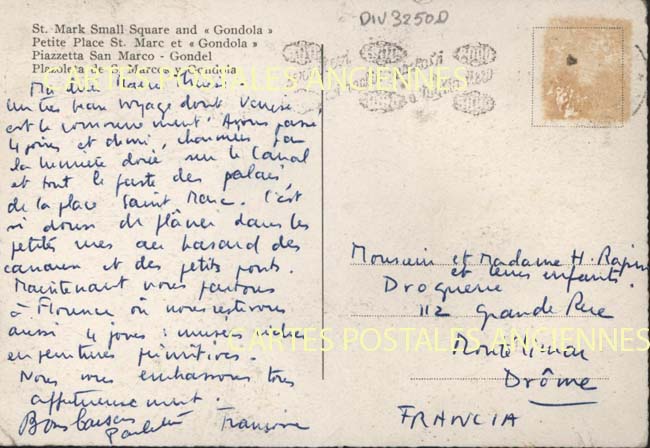 DIV3250D
St. Mark Small Square and « Gondola »
Petite Place St. Marc et « Gondola »
Piazzetta San Marco - Gondel
Plazoleta de S. Marco y Gondola
CARTES POSTALES ANCIENNES
Un très beau voyage dont Venise
est le couronnement! Avons passé
4 jours et demi, charmés par
la lumière dorée sur le Canal
et tout le faste des palais,
de la place Saint Marc. C'est
si doux de flâner dans les
petites rues au hasard des
canaux et des petits ponts.
Maintenant nous partons
à Florence où nous restons
aussi 4 jours : musées riches
en peintures primitives.
Nous vous embrassons tous
affectueusement.
Bons baisers
Paulette Françoise
Monsieur et Madame H. Rapin
et leurs enfants.
Droguerie
112 Grande Rue
CARTES POSTALES ANCIENNES
Montélimar
Drôme
FRANCIA